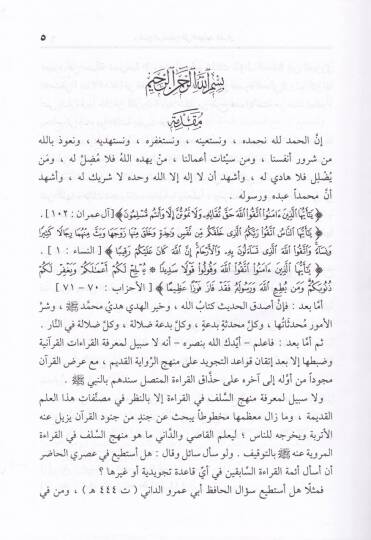 ٥
بسم الله الرحمن الرحيم
مقدمة
إنَّ الحمد لله نحمده ، ونستعينه ، ونستغفره ، ونستهديه ، ونعوذ بالله
من شرور أنفسنا ، ومن سيِّئات أعمالنا ، مَنْ يهده اللهُ فلا مُضِلَّ له ، ومَن
يُضْلِل فلا هادي له ، وأشهد أن لا إله إلا الله وحده لا شريك له ، وأشهد
أنَّ محمداً عبده ورسوله .
﴿ يَٰٓأَيُّهَا ٱلَّذِينَ ءَامَنُوا۟ ٱتَّقُوا۟ ٱللَّهَ حَقَّ تُقَاتِهِۦ وَلَا تَمُوتُنَّ إِلَّا وَأَنتُم مُّسْلِمُونَ ﴾ [آل عمران : ١٠٢] .
﴿ يَٰٓأَيُّهَا ٱلنَّاسُ ٱتَّقُوا۟ رَبَّكُمُ ٱلَّذِى خَلَقَكُم مِّن نَّفْسٍ وَٰحِدَةٍ وَخَلَقَ مِنْهَا زَوْجَهَا وَبَثَّ مِنْهُمَا رِجَالًا كَثِيرًا
وَنِسَآءً وَٱتَّقُوا۟ ٱللَّهَ ٱلَّذِى تَسَآءَلُونَ بِهِۦ وَٱلْأَرْحَامَ إِنَّ ٱللَّهَ كَانَ عَلَيْكُمْ رَقِيبًا ﴾ [ النساء : ١ ] .
﴿ يَٰٓأَيُّهَا ٱلَّذِينَ ءَامَنُوا۟ ٱتَّقُوا۟ ٱللَّهَ وَقُولُوا۟ قَوْلًا سَدِيدًا * يُصْلِحْ لَكُمْ أَعْمَٰلَكُمْ وَيَغْفِرْ لَكُمْ
ذُنُوبَكُمْ وَمَن يُطِعِ ٱللَّهَ وَرَسُولَهُۥ فَقَدْ فَازَ فَوْزًا عَظِيمًا ﴾ [ الأحزاب : ٧٠ – ٧١ ]
أمَّا بعد : فإنَّ أصدق الحديث كتابُ الله ، وخير الهدي هديُ محمَّد ﷺ ، وشرَّ
الأمور مُحدثاتُها ، وكلَّ محدثةٍ بدعةٍ ، وكلَّ بدعة ضلالة ، وكلَّ ضلالة في النَّار .
ثم أمَّا بعد : فاعلم – أيَّدك الله بنصره – أنه لا سبيل لمعرفة القراءات القرآنية
وضبطها إلا بعد إتقان قواعد التجويد على منهج الرواية القديم ، مع عرض القرآن
مجوداً من أوَّله إلى آخره على حذَّاق القراءة المتصل سندهم بالنبي ﷺ .
ولا سبيل لمعرفة منهج السلف في القراءة إلا بالنظر في مصنَّفات هذا العلم
القديمة ، وما زال معظمها مخطوطاً يبحث عن جندٍ من جنود القرآن يزيل عنه
الأتربة ويخرجه للناس ؛ ليعلم القاصي والدَّاني ما هو منهج السَّلف في القراءة
المروية عنه ﷺ بالتوقيف . ولو سأل سائل وقال : هل أستطيع في عصري الحاضر
أن أسأل أئمة القراءة السابقين في أيِّ قاعدة تجويدية أو غيرها ؟
فمثلًا هل أستطيع سؤال الحافظ أبي عمرو الداني ( ت ٤٤٤ هـ ) ، ومن في